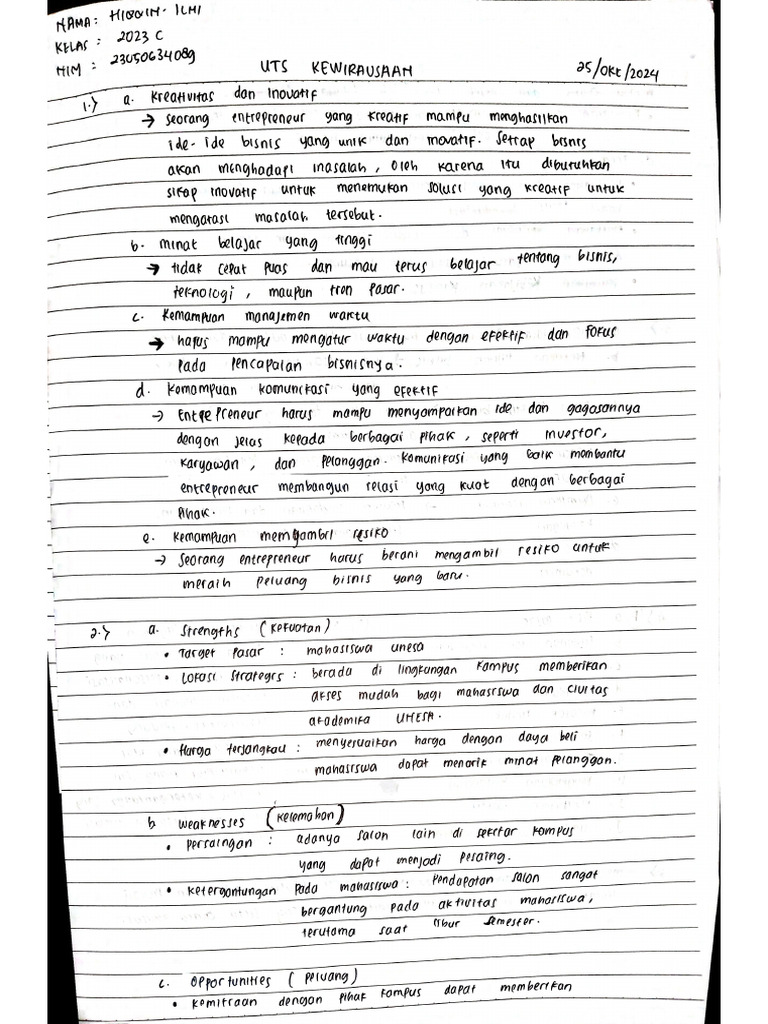 NAMA : HIQQIN. ILMI
KELAS : 2023 C
NIM : 23050634089
UTS KEWIRAUSAAN
25/Okt/2024
1.) a. Kreativitas dan Inovatif
→ Seorang entrepreneur yang kreatif mampu menghasilkan
ide-ide bisnis yang unik dan inovatif. Setiap bisnis
akan menghadapi masalah, oleh karena itu dibutuhkan
sikap inovatif untuk menemukan solusi yang kreatif untuk
mengatasi masalah tersebut.
b. minat belajar yang tinggi
→ tidak cepat puas dan mau terus belajar tentang bisnis,
teknologi, maupun tren pasar.
c. Kemampuan manajemen waktu
→ harus mampu mengatur waktu dengan efektif dan fokus
pada pencapaian bisnisnya.
d. Kemampuan komunikasi yang efektif
→ Entrepreneur harus mampu menyampaikan ide dan gagasannya
dengan jelas kepada berbagai pihak, seperti investor,
karyawan, dan pelanggan. Komunikasi yang baik membantu
entrepreneur membangun relasi yang kuat dengan berbagai
pihak.
e. Kemampuan mengambil resiko
→ Seorang entrepreneur harus berani mengambil resiko untuk
meraih peluang bisnis yang baru.
2.) a. Strengths (kekuatan)
• Target pasar : mahasiswa unesa
• Lokasi strategis : berada di lingkungan kampus memberikan
akses mudah bagi mahasiswa dan civitas
akademika UNESA.
• Harga terjangkau : menyesuaikan harga dengan daya beli
mahasiswa dapat menarik minat pelanggan.
b weaknesses (kelemahan)
• Persaingan : adanya salon lain di sekitar kampus
yang dapat menjadi pesaing.
• Ketergantungan pada mahasiswa : Pendapatan salon sangat
bergantung pada aktivitas mahasiswa,
terutama saat libur semester.
c. Opportunities (peluang)
• Kemitraan dengan pihak kampus dapat memberikan